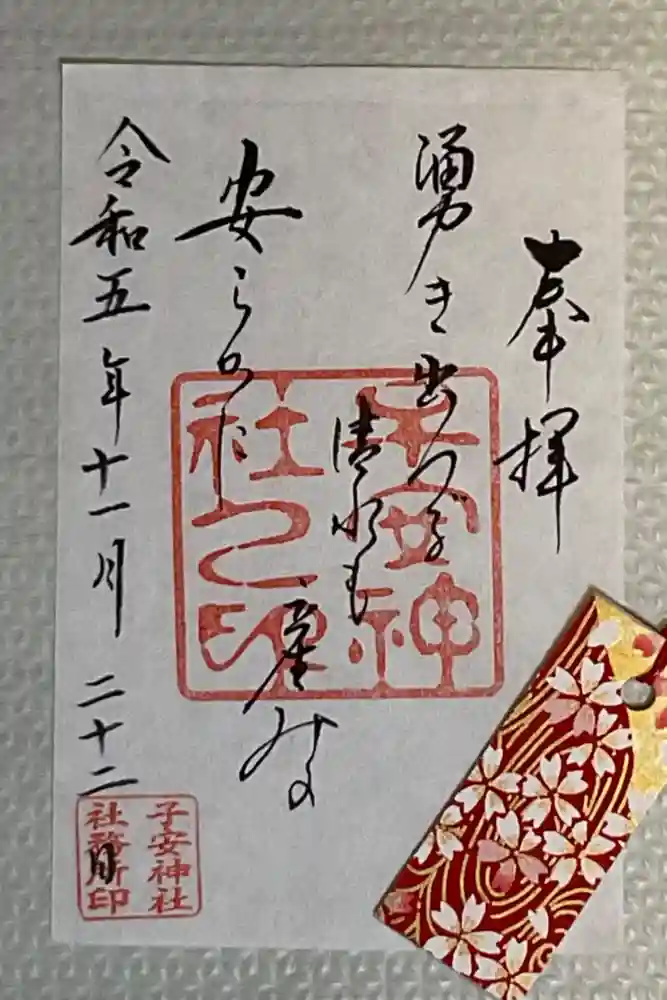 奉拝
湧き出づる
清水も
安らかに
産みの
令和五年十一月二十二日
子安神社之印
子安神社
社務所印